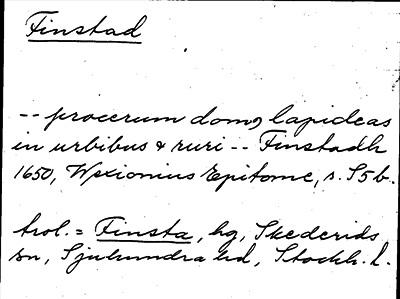 Finstad
-- procerum domꝯ lapideas
in urbibus & ruri -- Finstadh
1650, Wexionius Epitome, s. S5b.
trol. = Finsta, hg, Skederids
sn, Sjuhundra hd, Stockh. l.